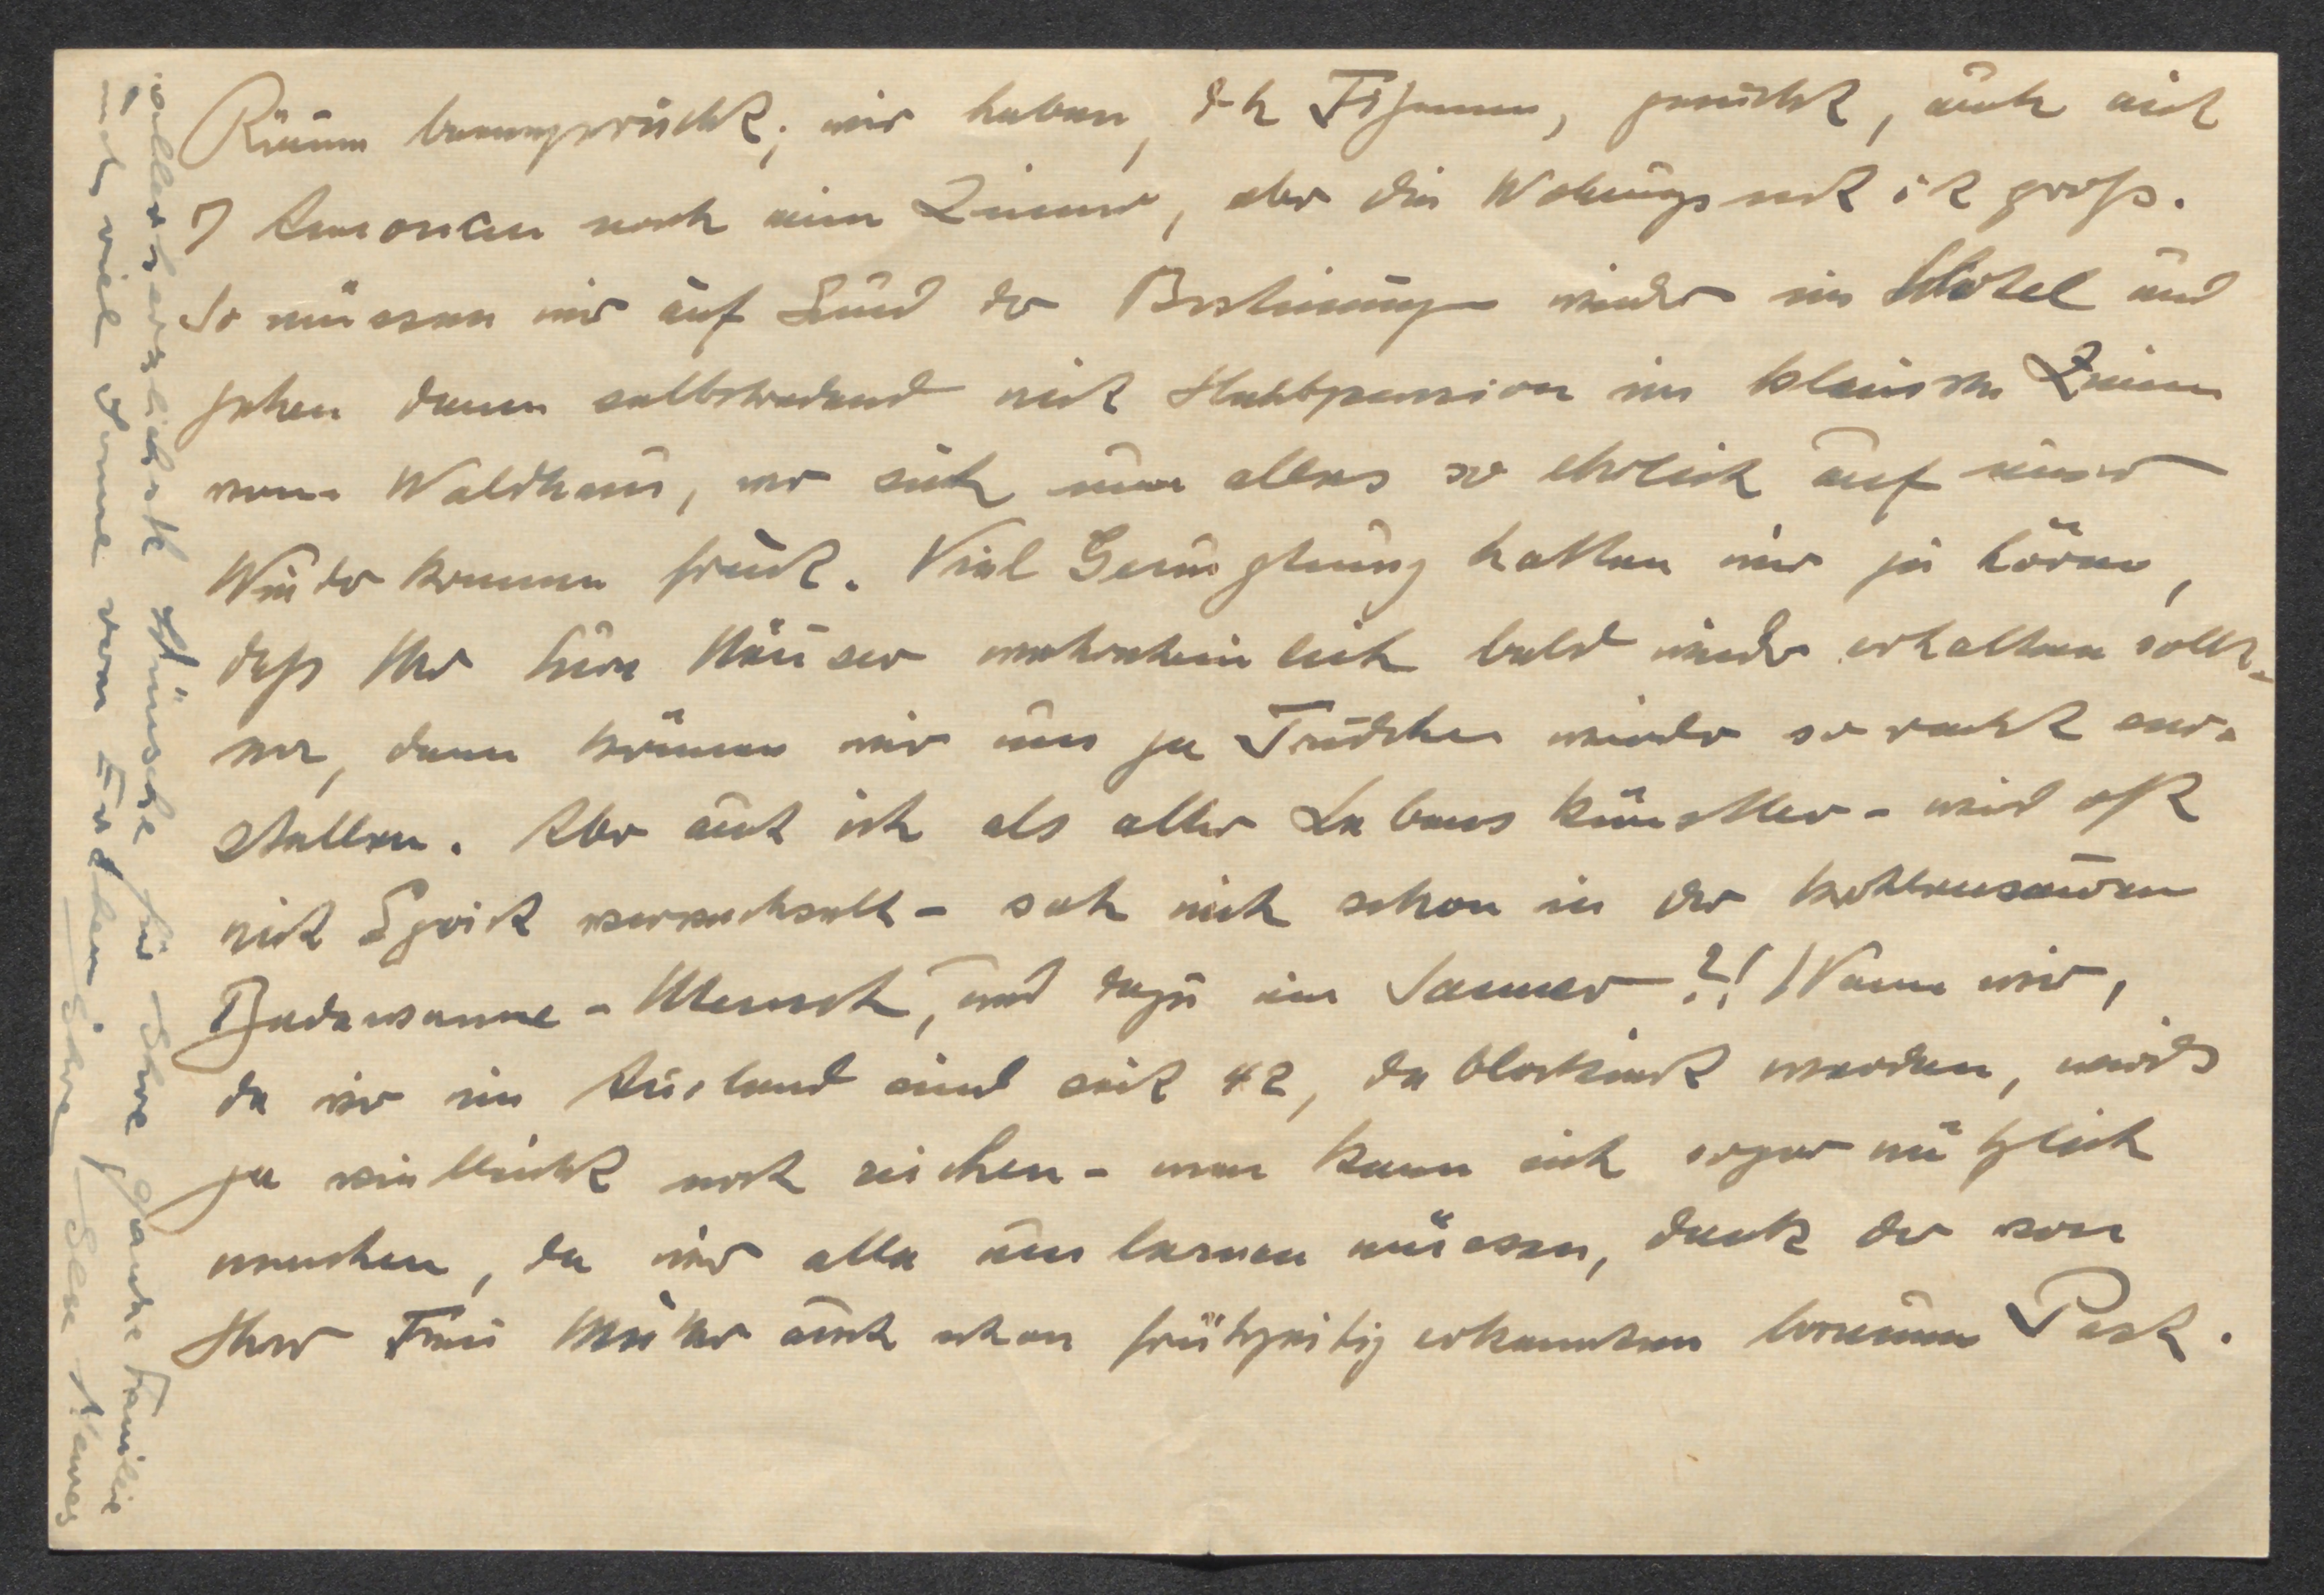 Räume beansprucht; wir haben, d. h. Fijsman, gesucht, auch mit
7 Annoncen noch ein Zimmer, aber die Wohnungsnot ist groß.
So müssen wir auf Grund der Bestimmung wieder ins Hotel und
gehen dann selbstredend mit Halbpension ins kleinste Zimmer
vom Waldhaus, wo sich nun alles so ehrlich auf unser
Wiederkommen freut. Viel Genugtuung hatten wir zu hören,
daß Ihr Eure Häuser wahrscheinlich bald wieder erhalten soll-
tet, dann können wir uns ja Trudchen wieder so recht vor-
stellen. Aber auch ich als alter Lebenskünstler - wird oft
mit Egoist verwechselt - sah mich schon in der kohlensauren
Badewanne - Mensch, und dazu im Sommer?! Wenn wir,
da wir im Ausland sind seit 42, da blockiert werden, wird's
ja vielleicht noch reichen - man kann sich sogar nützlich
machen, da wir alle umlernen müssen, dank der von
Ihrer Frau Mutter auch schon frühzeitig erkannten braunen Pest.
allerherzlichste Wünsche für Ihre ganze Familie
und viel Sonne vom Frdchen Ihre